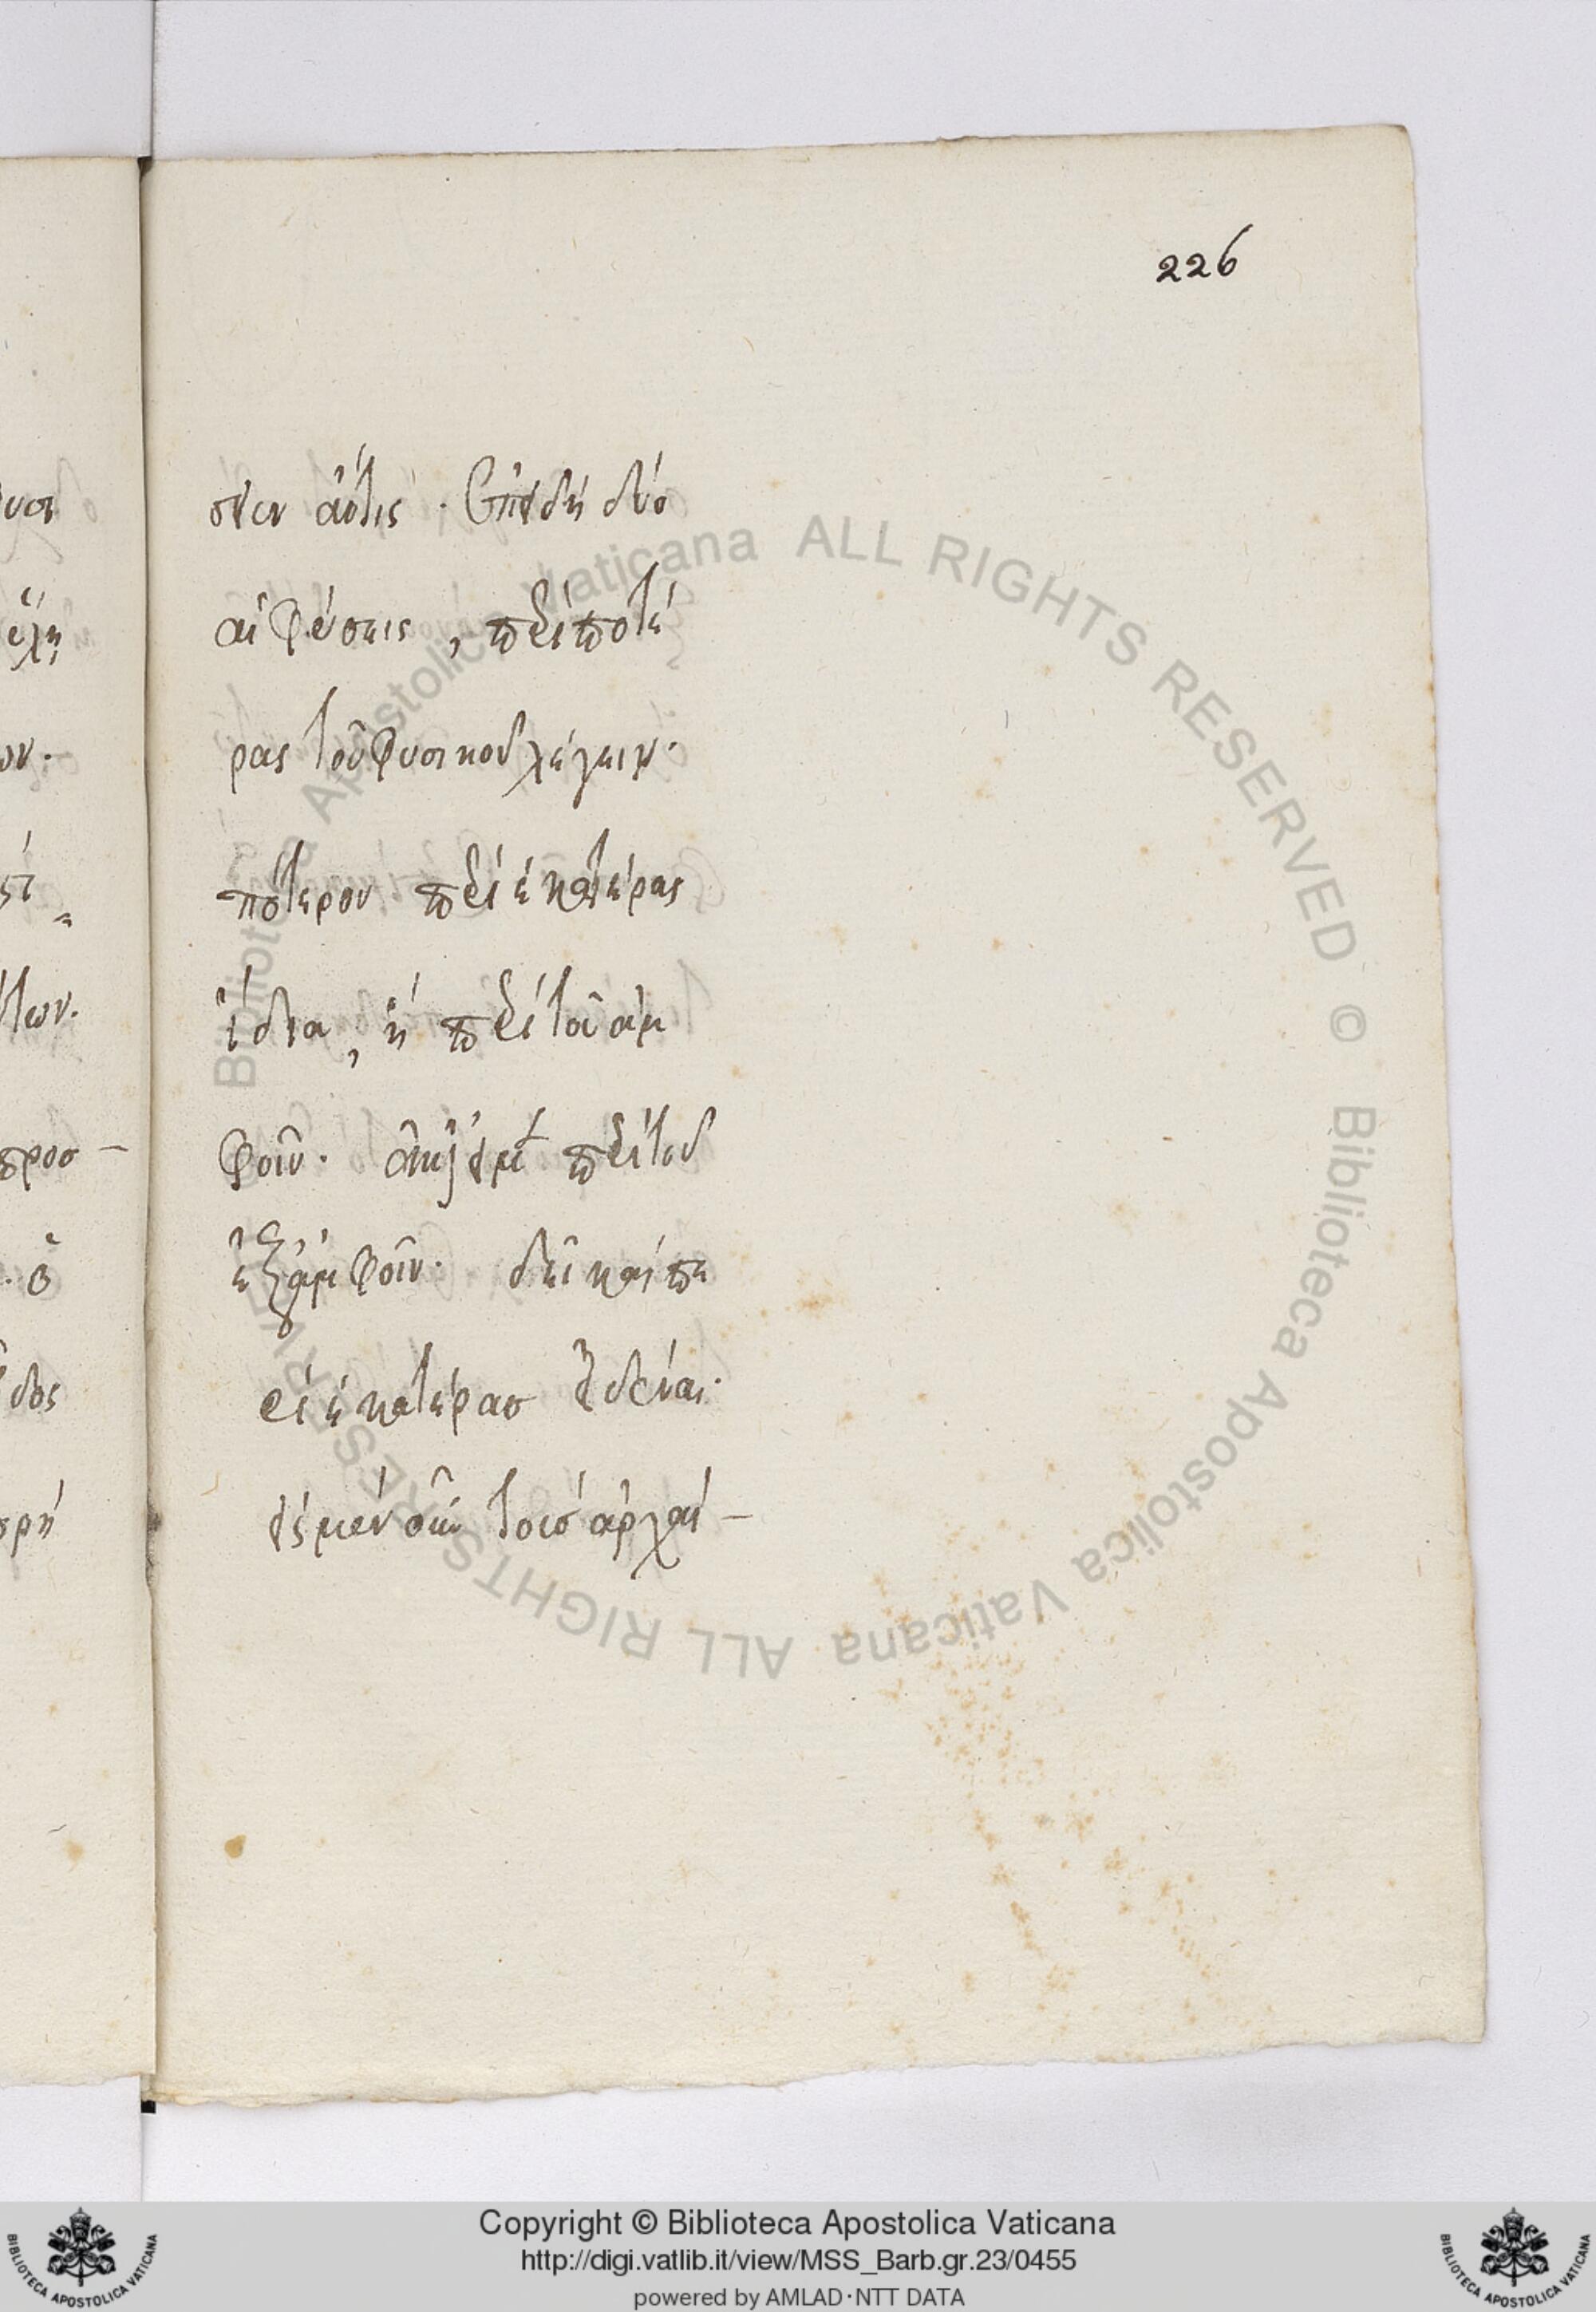 226
σειεν ἄν τις. Ἐπειδὴ δύο
αἱ φύσεις, περὶ ποτέ
ρας τοῦ φυσικοῦ λέγειν.
πότερον περὶ ἑκατέρας
ἰδία, ἢ περὶ τοῦ ἀμ
φοῖν. ἀλλ' εἰ μὲν περὶ τοῦ
ἐξ ἀμφοῖν. δεῖ καὶ πε
ρὶ ἑκατέρασ εἰδέναι.
εἰς μὲν οὖν τοὺσ ἀρχαί-
υσι
ων.
των.
προσ-
ὁ
δος
ρη
Biblioteca Apostolica Vaticana ALL RIGHTS RESERVED © Biblioteca Apostolica Vaticana ALL RIGHTS RESERVED
Copyright © Biblioteca Apostolica Vaticana
http://digi.vatlib.it/view/MSS_Barb.gr.23/0455
powered by AMLAD·NTT DATA
BIBLIOTECA APOSTOLICA VATICANA
BIBLIOTECA APOSTOLICA VATICANA